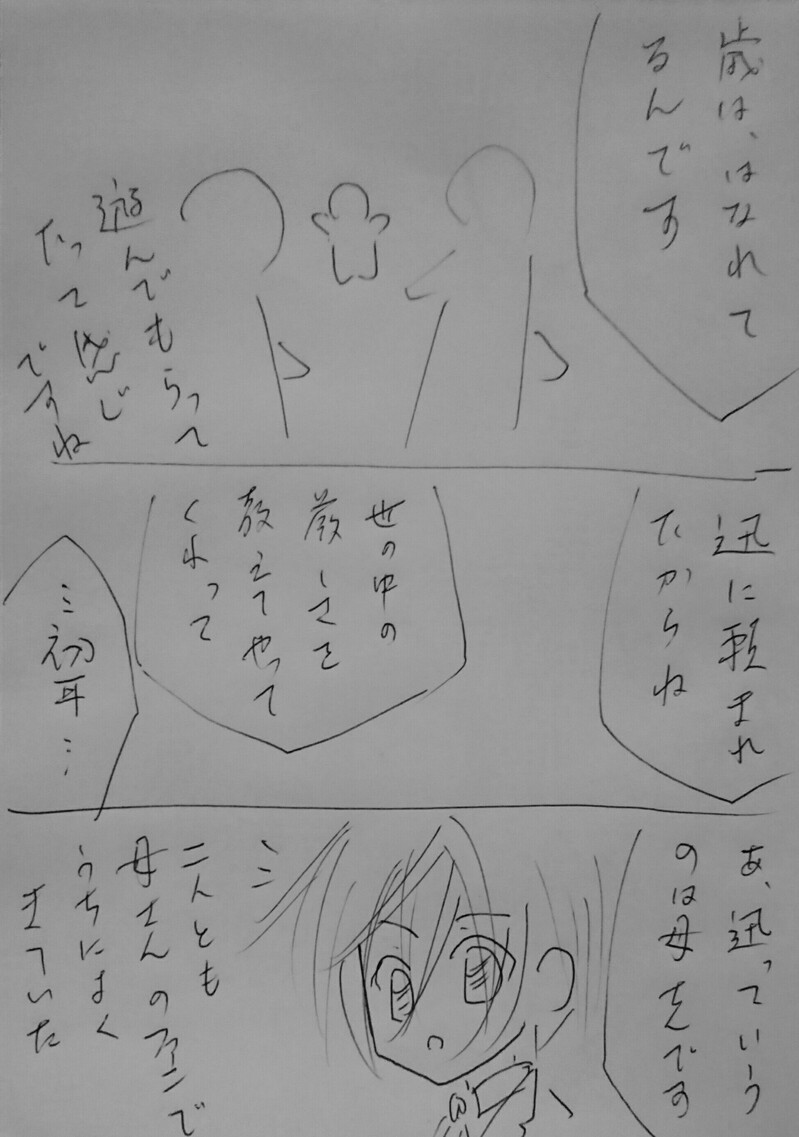 歳は、はなれて
るんです
遊んでもらって
たって感じ
ですね
迅に頼まれ
たからね
世の中の
厳しさを
教えてやって
くれって
…初耳…
あ、迅っていう
のは母さんです
二人とも
母さんのファンで
うちによく
きていた